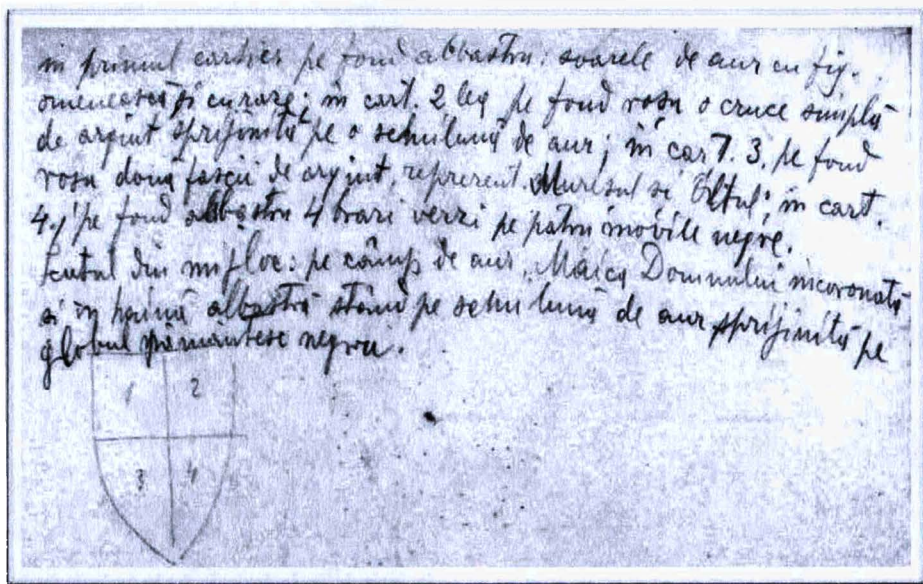 in primul cartier pe fond albastru: soarele de aur cu fig.
omenească și cu raze; in cart. 2 lea pe fond rosu o cruce simplă
de argint sprijinită pe o semilună de aur; in cart. 3. pe fond
rosu două fascii de argint, reprezent. Muresul si Oltul; in cart.
4./ pe fond albastru 4 brazi verzi pe patru movile negre.
Scutul din mijloc: pe câmp de aur, Maica Domnului incoronată
si in haină albastră stând pe semilună de aur sprijinită pe
globul pămantesc negru.
1 2
3 4